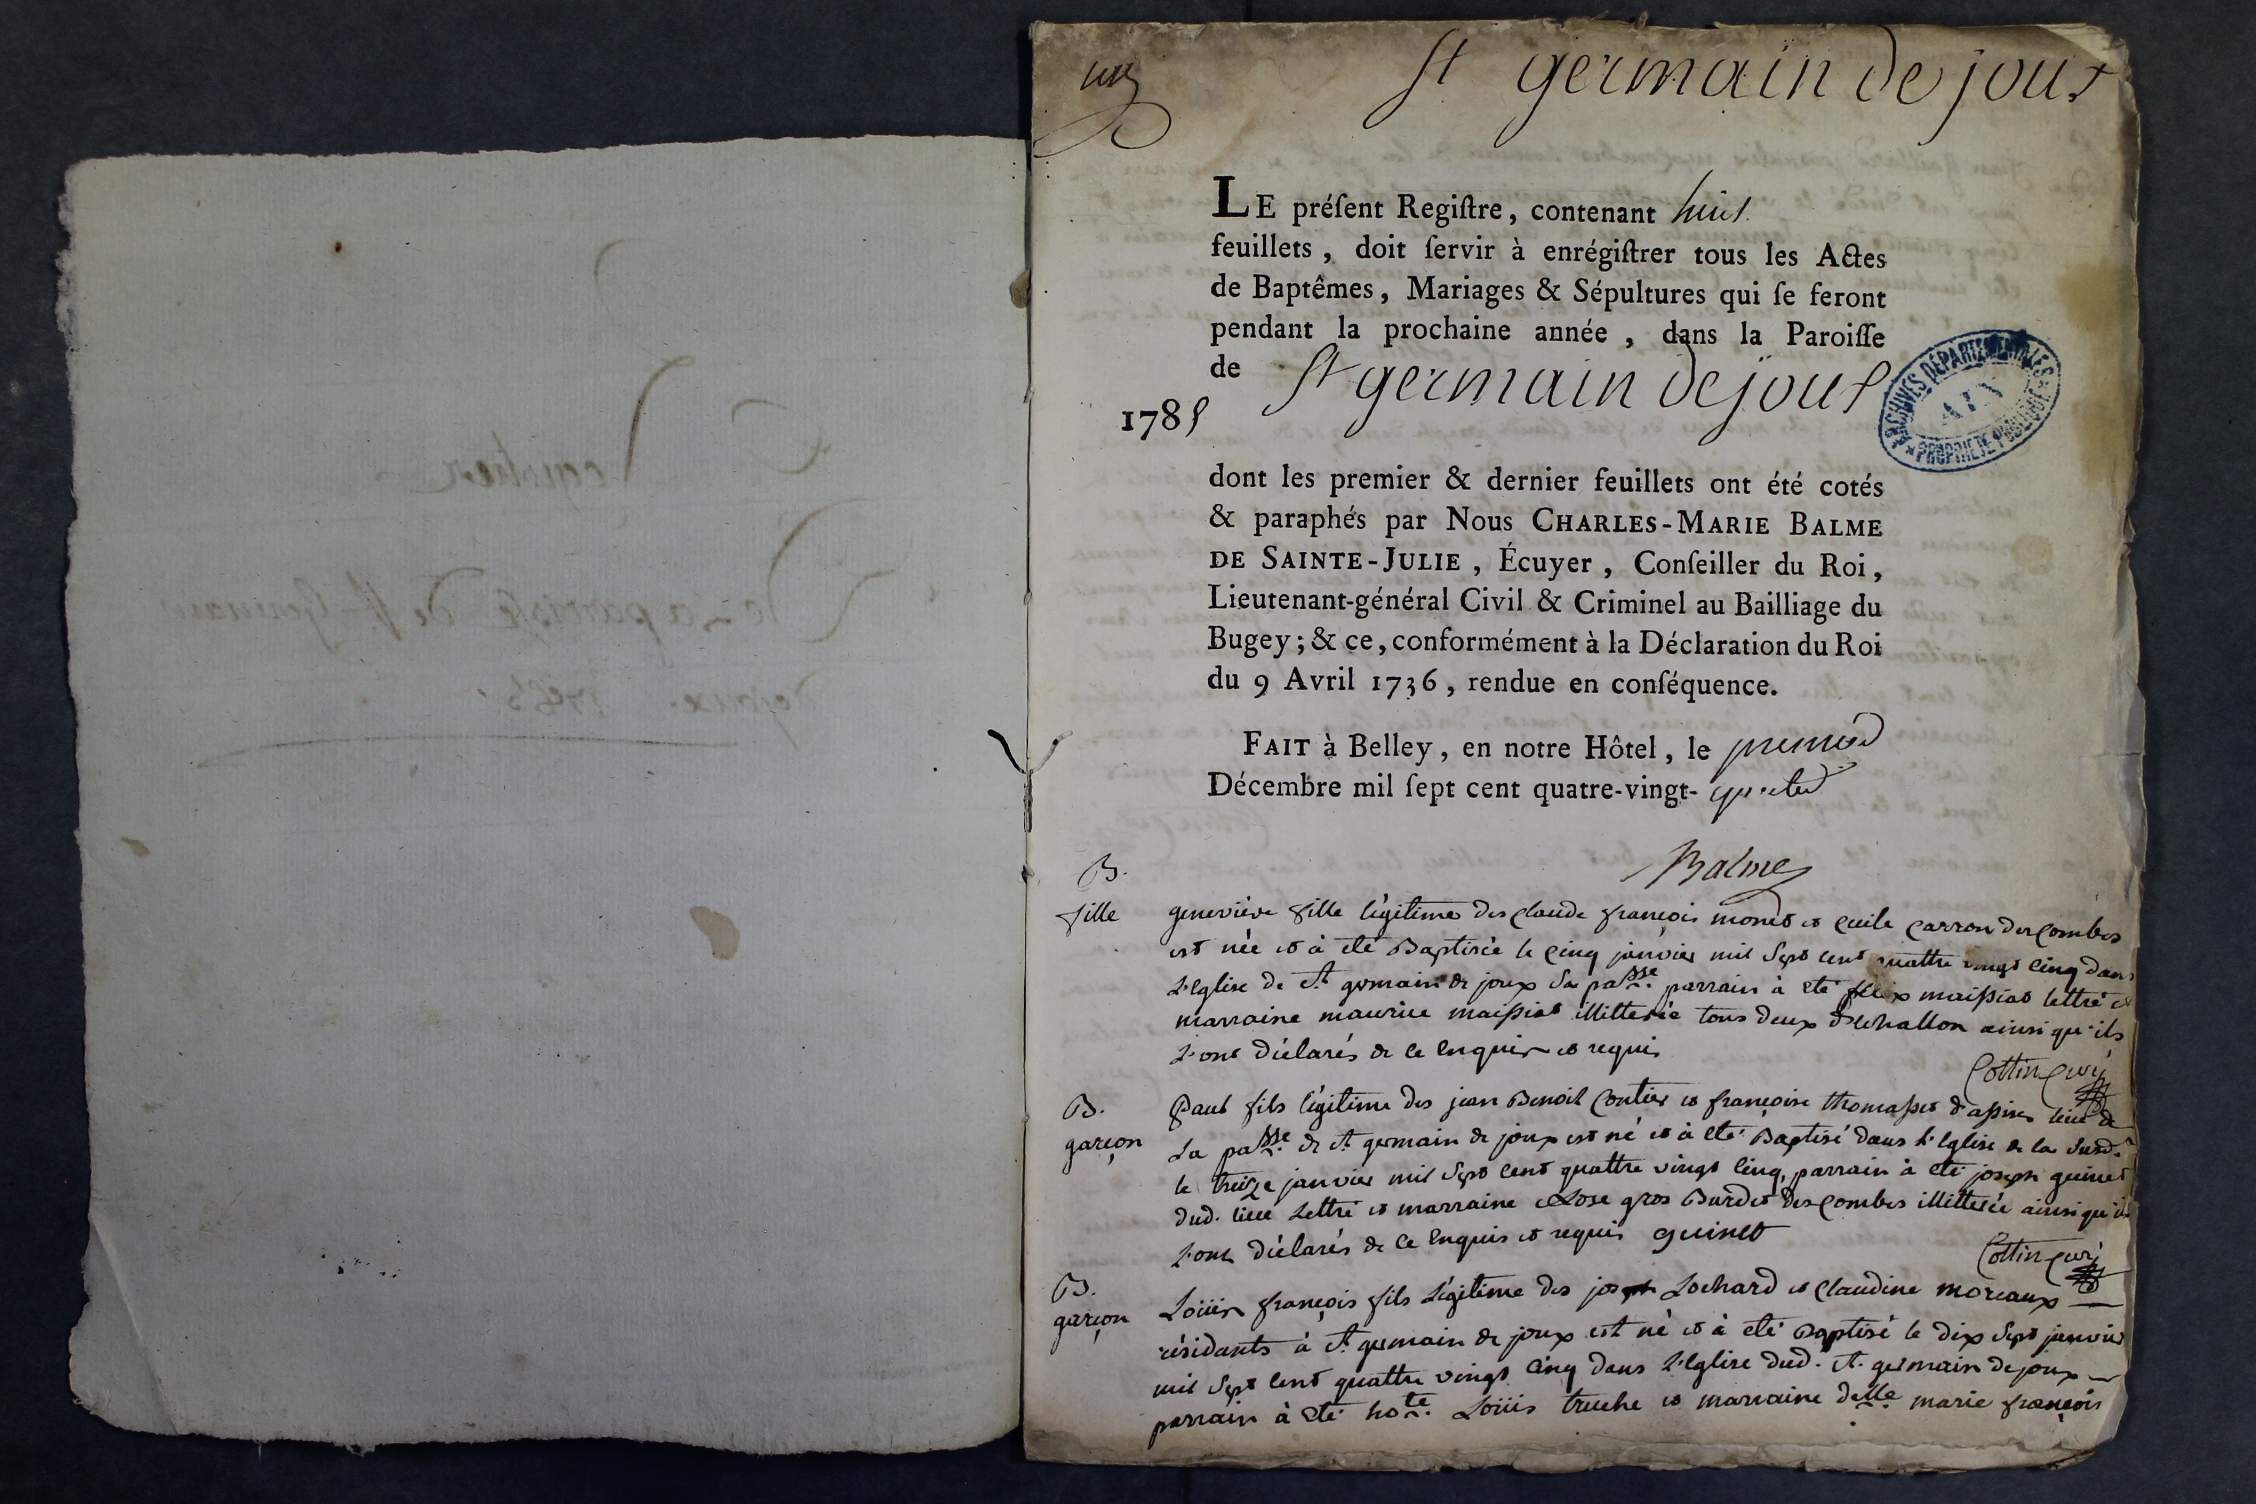 un
St germain de joux
LE préſent Regiſtre, contenant huit
feuillets, doit ſervir à enrégiſtrer tous les Actes
de Baptêmes, Mariages & Sépultures qui ſe feront
pendant la prochaine année, dans la Paroiſſe
de St germain de joux
1785
ARCHIVES DÉPARTEMENTALES
AIN
PROPRIÉTÉ PUBLIQUE
dont les premier & dernier feuillets ont été cotés
& paraphés par Nous CHARLES-MARIE BALME
DE SAINTE-JULIE, Écuyer, Conſeiller du Roi,
Lieutenant-général Civil & Criminel au Bailliage du
Bugey; & ce, conformément à la Déclaration du Roi
du 9 Avril 1736, rendue en conſéquence.
FAIT à Belley, en notre Hôtel, le premier
Décembre mil ſept cent quatre-vingt- quatre
Balme
B.
fille
geneviève fille légitime des claude françois monet et carron des combes
est née et à eté Baptisée le cinq janvier mil Sept cent quattre vingt cinq dans
L'Eglise de St germain de joux Sa passe. parrain à eté felix maissiat lettré et
marraine maurice maissiat illitterée tous deux d'echallon ainsi qu'ils
L'ont déclarés de ce enquis et requis
Cottin curé
B.
garçon
Paul fils légitime des jean Benoit Contier et françoise thomasset lieu de
La passe. de St germain de joux est né et à eté Baptisé dans L'Eglise de la susd.
le treize janvier mil Sept cent quattre vingt cinq, parrain à eté joseph guinet
dud. lieu Lettré et marraine gros Burdet des combes illitterée ainsi qu'ils
L'ont déclarés de ce enquis et requis guinet
Cottin curé
B.
garçon
Loüis françois fils Légitime des joseph Lochard et Claudine moreaux
résidants à St germain de joux est né et à eté Baptisé le dix Sept janvier
mil Sept cent quattre vingt cinq dans L'Eglise dud. St. germain de joux
parrain à eté hote. Loüis truche et marraine delle. marie françois